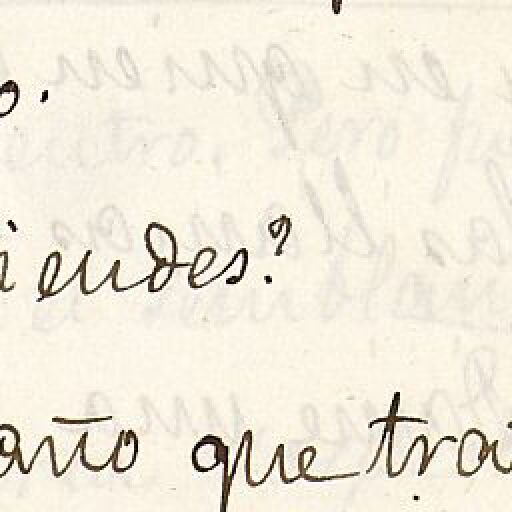 o.
iendes?
año que tra